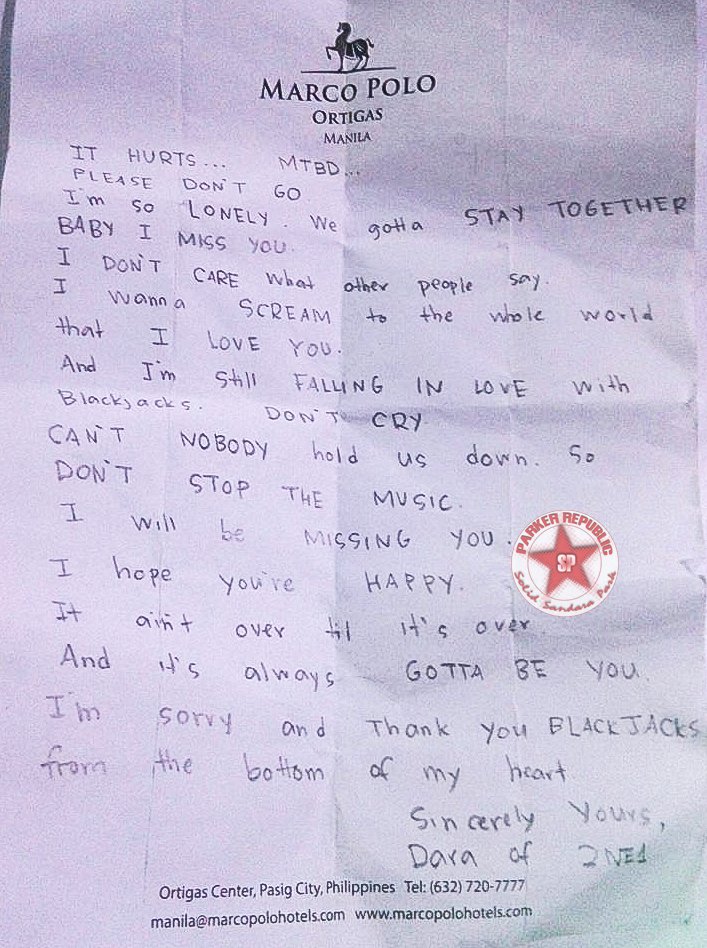 MARCO POLO
ORTIGAS
MANILA
IT HURTS... MTBD...
PLEASE DON'T GO.
I'm so LONELY. We gotta STAY TOGETHER
BABY I MISS YOU.
I DON'T CARE what other people say.
I wanna SCREAM to the whole world
that I LOVE YOU.
And I'm still FALLING IN LOVE with
Blackjacks. DON'T CRY.
CAN'T NOBODY hold us down. So
DON'T STOP THE MUSIC.
I will be MISSING YOU.
I hope you're HAPPY.
It ain't over til it's over.
And it's always GOTTA BE YOU.
I'm sorry and Thank you BLACKJACKS
from the bottom of my heart.
Sincerely Yours,
Dara of 2NE1
PARKER REPUBLIC
SP
Solid Sandara Park
Ortigas Center, Pasig City, Philippines Tel: (632) 720-7777
manila@marcopolohotels.com www.marcopolohotels.com